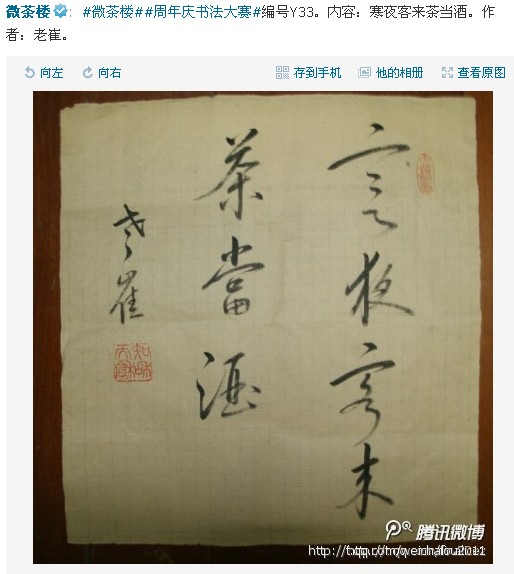 微茶楼：#微茶楼##周年庆书法大赛#编号Y33。内容：寒夜客来茶当酒。作
者：老崔。
向左 向右 存到手机 他的相册 查看原图
寒夜客来
茶當酒
老崔
腾讯微博